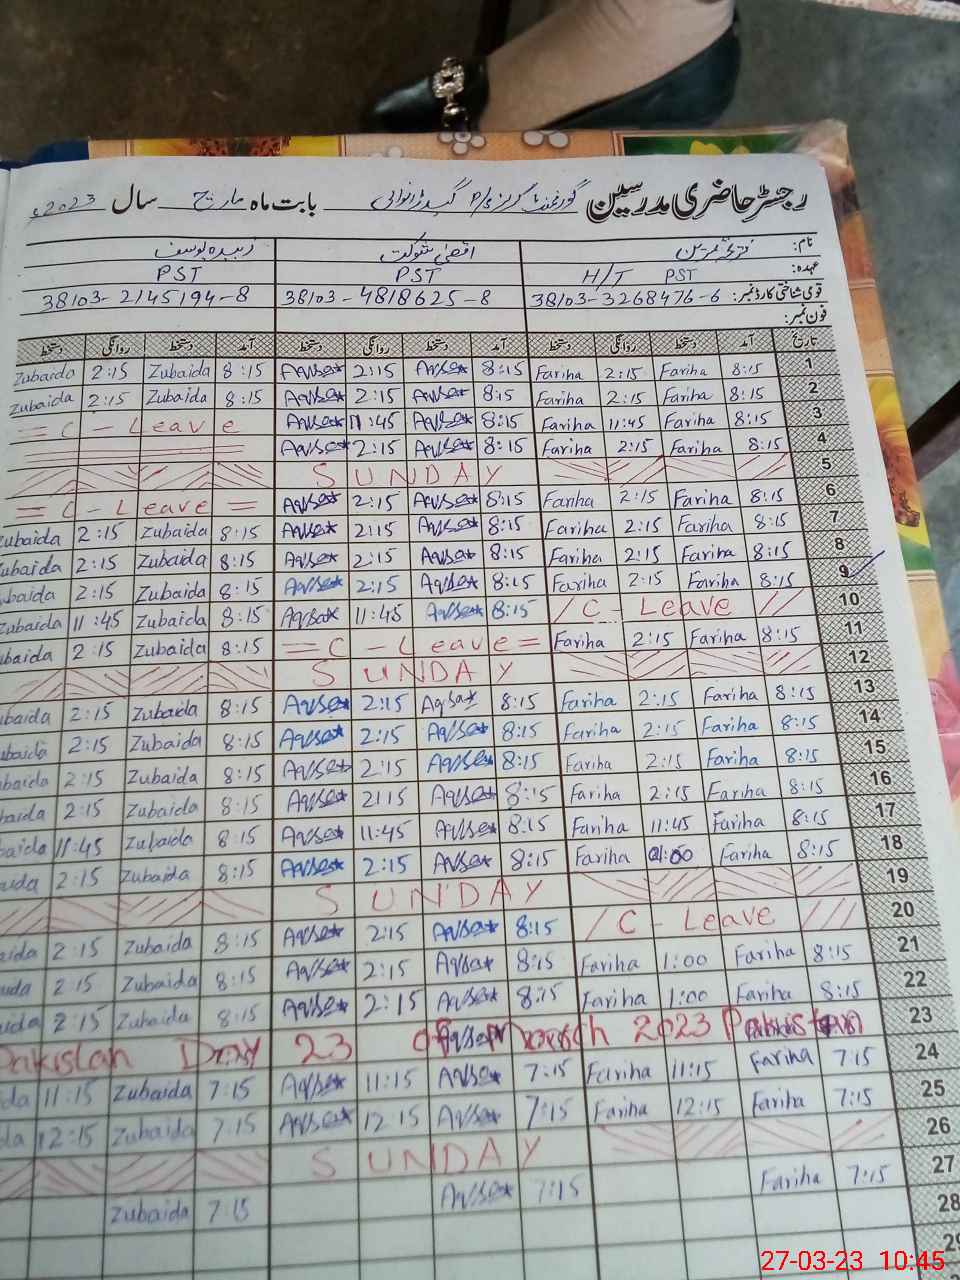 رجسٹر حاضری مدرسین گورنمنٹ گرلز P/S بابت ماہ مارچ سال 2023ء
نام: زبیدہ یوسف اقصیٰ شوکت
عہدہ: H/T PST PST PST
قومی شناختی کارڈ نمبر: 38103-3268476-6 38103-4818625-8 38103-2145194-8
فون نمبر:
تاریخ آمد دستخط روانگی دستخط آمد دستخط روانگی دستخط آمد دستخط روانگی دستخط
Zubaida 2:15 Zubaida 8:15 Aqsa 2:15 Aqsa 8:15 Fariha 2:15 Fariha 8:15 1
Zubaida 2:15 Zubaida 8:15 Aqsa 2:15 Aqsa 8:15 Fariha 2:15 Fariha 8:15 2
= C - Leave Aqsa 11:45 Aqsa 8:15 Fariha 11:45 Fariha 8:15 3
Aqsa 2:15 Aqsa 8:15 Fariha 2:15 Fariha 8:15 4
SUNDAY 5
= C - Leave = Aqsa 2:15 Aqsa 8:15 Fariha 2:15 Fariha 8:15 6
ubaida 2:15 Zubaida 8:15 Aqsa 2:15 Aqsa 8:15 Fariha 2:15 Fariha 8:15 7
ubaida 2:15 Zubaida 8:15 Aqsa 2:15 Aqsa 8:15 Fariha 2:15 Fariha 8:15 8
ubaida 2:15 Zubaida 8:15 Aqsa 2:15 Aqsa 8:15 Fariha 2:15 Fariha 8:15 9
ubaida 11:45 Zubaida 8:15 Aqsa 11:45 Aqsa 8:15 / C - Leave // 10
ubaida 2:15 Zubaida 8:15 = C - Leave = Fariha 2:15 Fariha 8:15 11
SUNDAY 12
ubaida 2:15 Zubaida 8:15 Aqsa 2:15 Aqsa 8:15 Fariha 2:15 Fariha 8:15 13
ubaida 2:15 Zubaida 8:15 Aqsa 2:15 Aqsa 8:15 Fariha 2:15 Fariha 8:15 14
baida 2:15 Zubaida 8:15 Aqsa 2:15 Aqsa 8:15 Fariha 2:15 Fariha 8:15 15
baida 2:15 Zubaida 8:15 Aqsa 2:15 Aqsa 8:15 Fariha 2:15 Fariha 8:15 16
baida 11:45 Zubaida 8:15 Aqsa 11:45 Aqsa 8:15 Fariha 11:45 Fariha 8:15 17
aida 2:15 Zubaida 8:15 Aqsa 2:15 Aqsa 8:15 Fariha 01:00 Fariha 8:15 18
SUNDAY 19
aida 2:15 Zubaida 8:15 Aqsa 2:15 Aqsa 8:15 / C - Leave /// 20
uda 2:15 Zubaida 8:15 Aqsa 2:15 Aqsa 8:15 Fariha 1:00 Fariha 8:15 21
uda 2:15 Zubaida 8:15 Aqsa 2:15 Aqsa 8:15 Fariha 1:00 Fariha 8:15 22
Pakistan Day 23 of March 2023 Pakistan 23
da 11:15 Zubaida 7:15 Aqsa 11:15 Aqsa 7:15 Fariha 11:15 Fariha 7:15 24
da 12:15 Zubaida 7:15 Aqsa 12:15 Aqsa 7:15 Fariha 12:15 Fariha 7:15 25
SUNDAY 26
Zubaida 7:15 Aqsa 7:15 Fariha 7:15 27
28
29
27-03-23 10:45